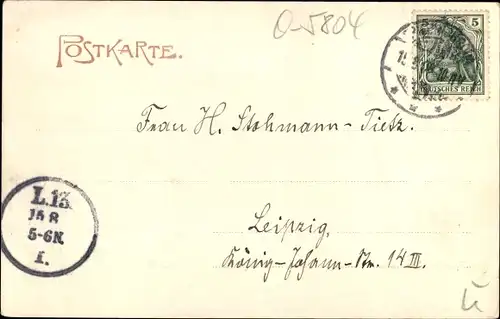 O-5804
POSTKARTE.
5
DEUTSCHES REICH
Frau H. Stohmann-Tietz.
L.13.
15 8
5-6N.
I.
Leipzig,
König-Johann-Str. 14 III.